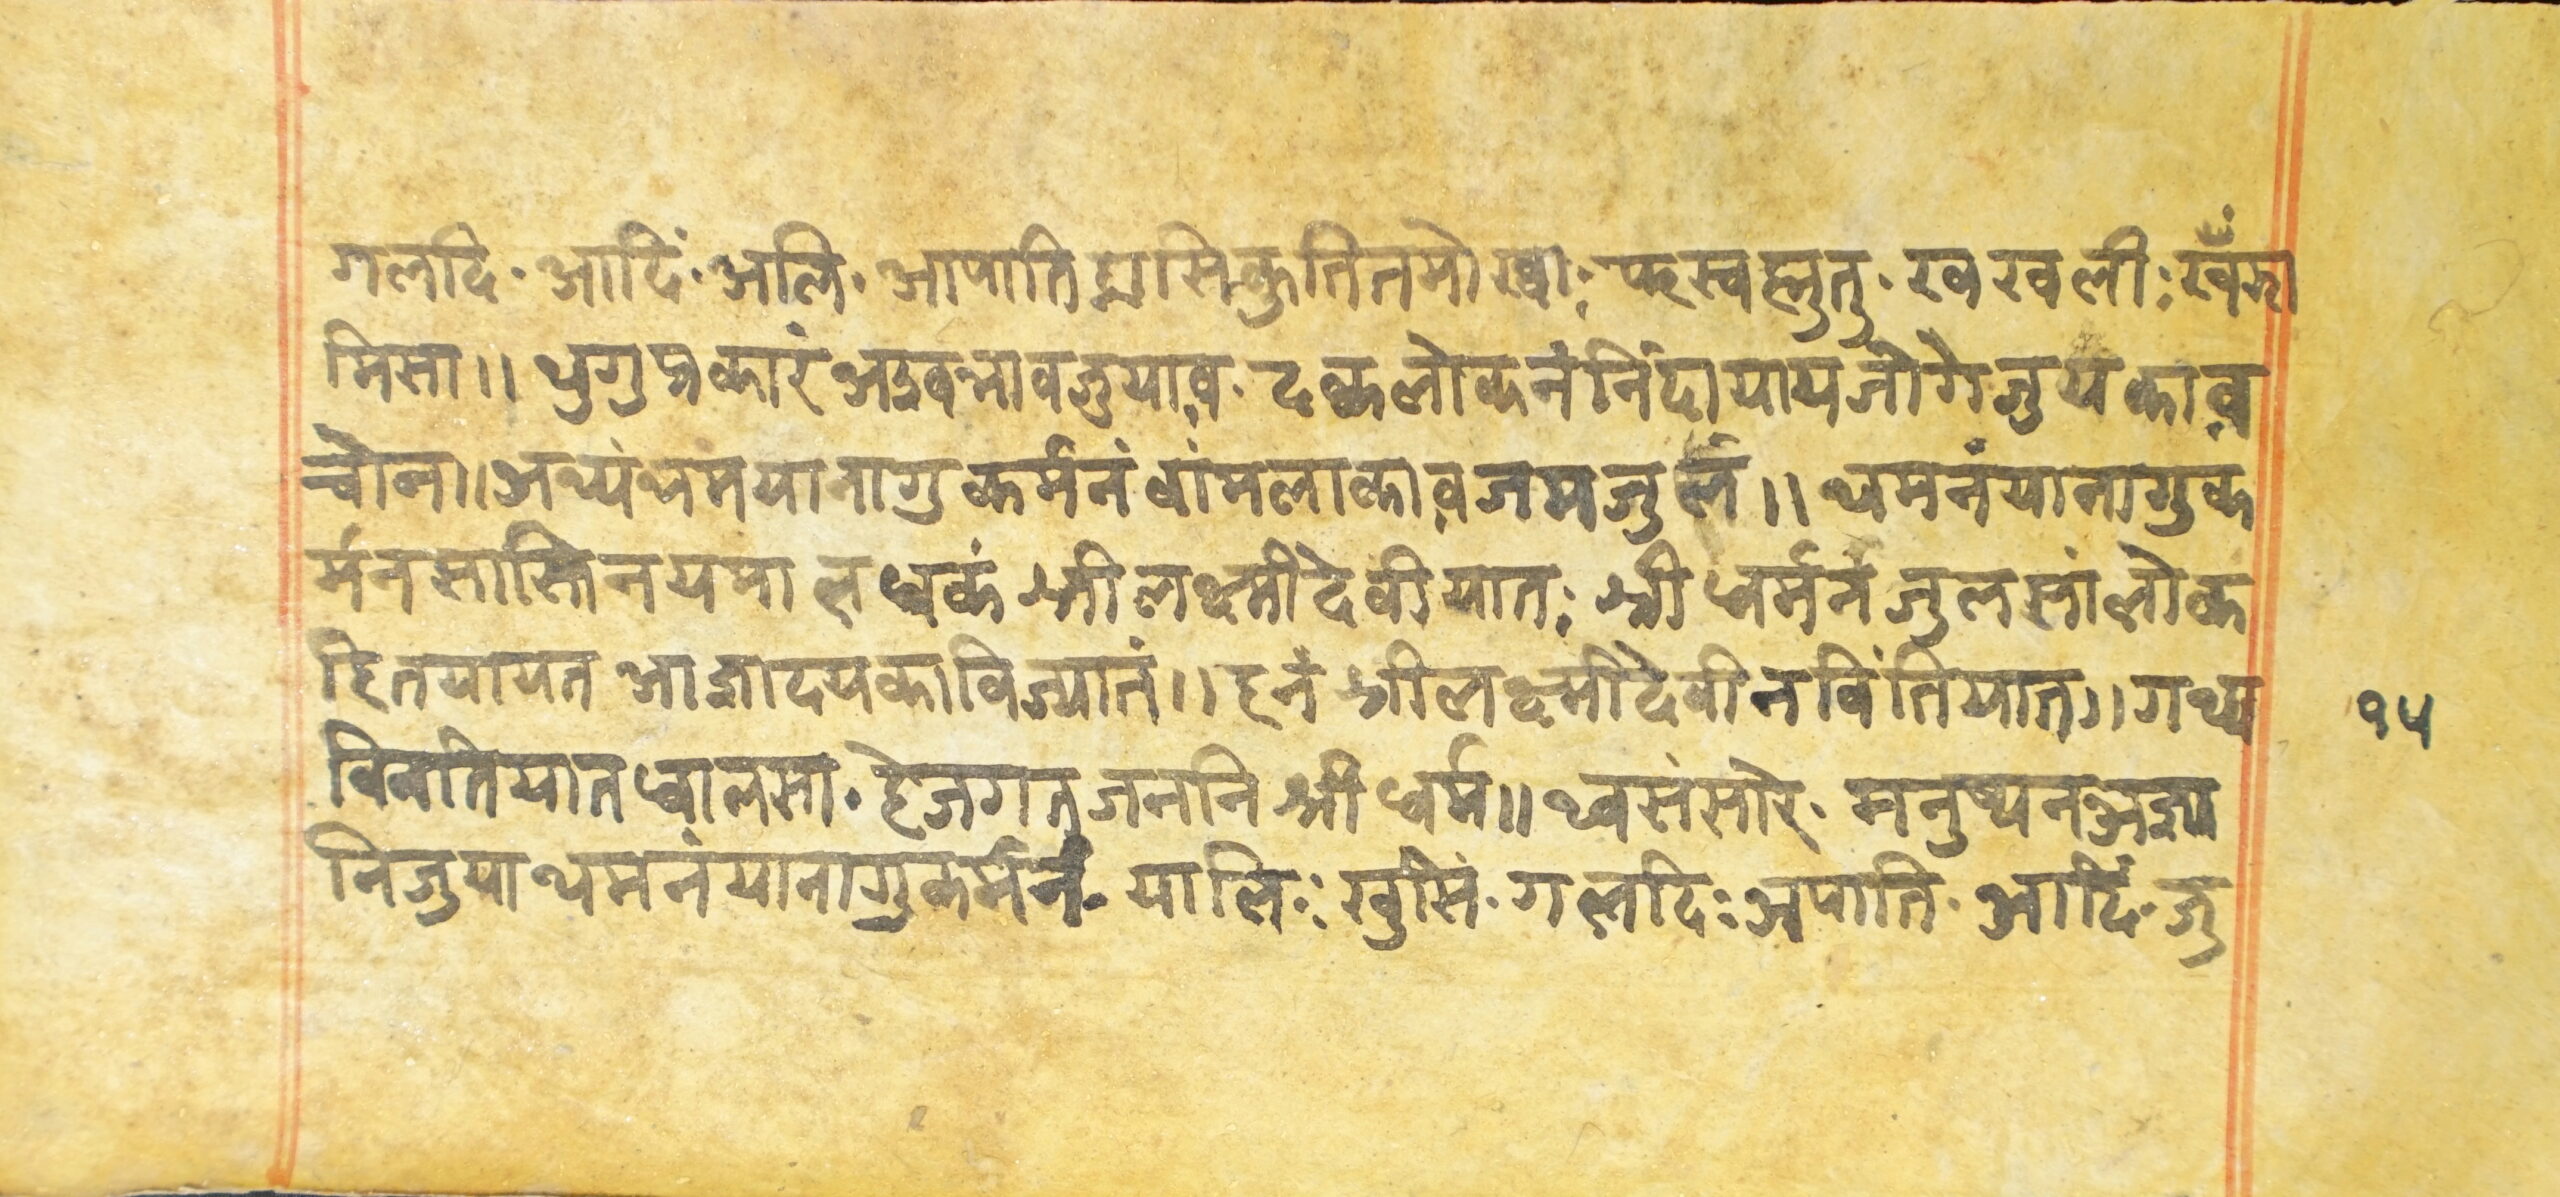 गलदि · आदिं · अलि · आपाति घ्रासि कुतिनमो ख्वाः ह्रस्वह्नुतु · खखली :
मिसा ॥ थुगु प्रकारं अदवभावजुयाव · दक्वलोकनं निंदायाय जोगे जुयकाव
चोन ॥ अथ्यं थमयानागु कर्मनं वांमलाकाव जमजुलं ॥ थमनंयानागु क
र्मन सास्तिनयमाल धकं श्रीलक्ष्मीदेवीयातः श्रीधर्मनं जुलसां लोक
हितयायत आज्ञादयका विज्यातं ॥ हनं श्रीलक्ष्मीदेवीन विंतियात ॥ गथ्य
विनतियात धालसा · हे जगत् जननि श्रीधर्म ॥ थ्वसंसारे · मनुष्यन अज्ञा
निजुया थमनंयानागु कर्मनं · यालि : खुसिं · गलदि : अपाति · आदिं · जु
१५